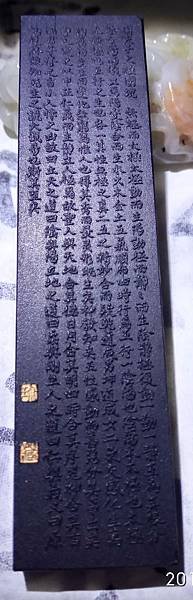 太極圖說 無極而太極太極動而生陽動極而靜〻而生陰靜極復動一動一靜互為其根分
陰分陽兩儀立焉陽變陰合而生水火木金土五氣順布四時行焉五行一陰陽也陰陽一太極也太極
本無極也五行之生也各一其性無極之真二五之精妙合而凝乾道成男坤道成女二氣交感化生萬
物萬物生生而變化無窮焉惟人也得其秀而最靈形既生矣神發知矣五性感動而善惡分萬事出矣
聖人定之以中正仁義而主靜立人極焉故聖人與天地合其德日月合其明四時合其序鬼神合其吉
凶君子修之吉小人悖之凶故曰立天之道曰陰與陽立地之道曰柔與剛立人之道曰仁與義又曰原
始反終故知死生之說大哉易也斯其至矣
20